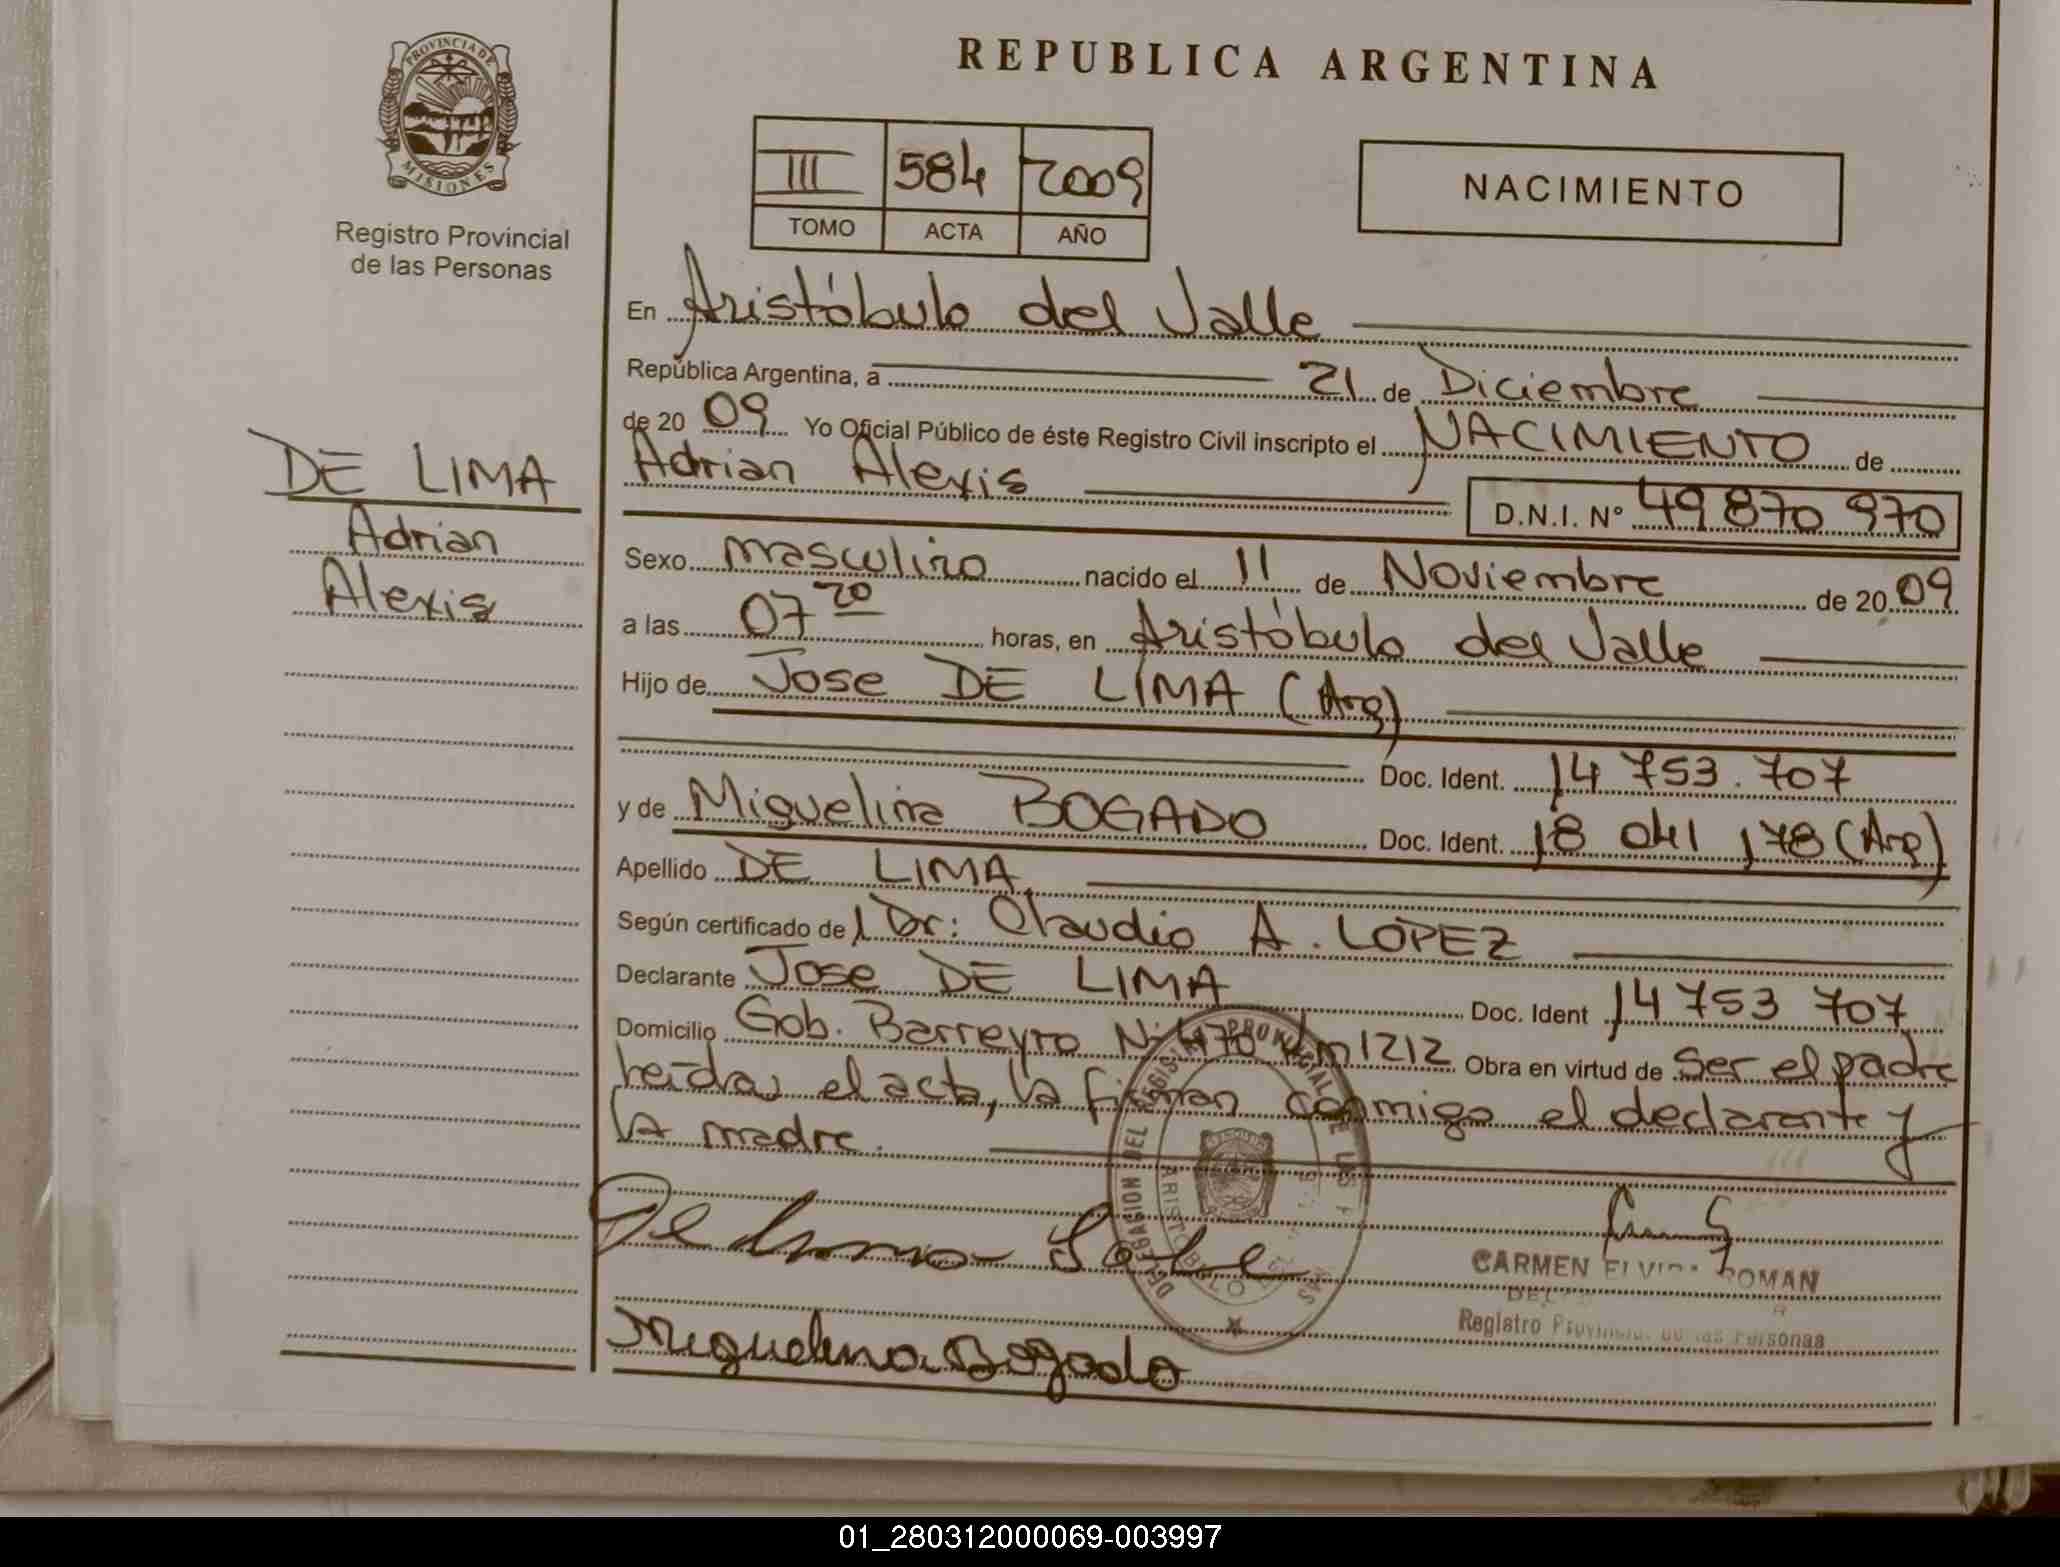 PROVINCIA DE
MISIONES
Registro Provincial
de las Personas
REPUBLICA ARGENTINA
III 584 2009
TOMO ACTA AÑO
NACIMIENTO
En Aristóbulo del Valle
República Argentina, a 21 de Diciembre
de 20 09 Yo Oficial Público de éste Registro Civil inscripto el NACIMIENTO de
DE LIMA
Adrian
Alexis
Adrian Alexis
D.N.I. Nº 49 870 970
Sexo masculino nacido el 11 de Noviembre de 20 09
a las 07 20 horas, en Aristóbulo del Valle
Hijo de Jose DE LIMA (Arg)
Doc. Ident. 14 753.707
y de Miguelina BOGADO Doc. Ident. 18 041 178 (Arg)
Apellido DE LIMA
Según certificado de Dr: Claudio A. LOPEZ
Declarante Jose DE LIMA Doc. Ident 14 753 707
Domicilio Gob. Barreyro Nº 470 km 1212 Obra en virtud de ser el padre
leída el acta, la firman conmigo el declarante y
la madre.
De Lima Jose
CARMEN ELVIRA ROMAN
Registro Provincial de las Personas
Miguelina Bogado
DELEGACION DEL REGISTRO PROVINCIAL DE LAS PERSONAS
ARISTOBULO
01_280312000069-003997